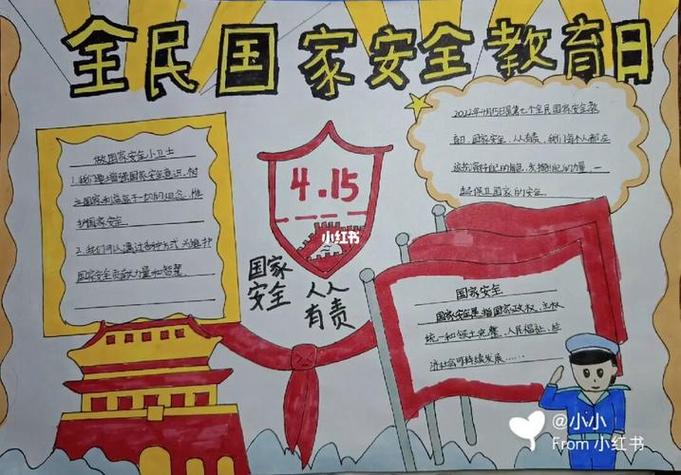 全民国家安全教育日
做国家安全小卫士
1.我们要增强国家安全意识,树
立国家利益高于一切的观念,维
护国家安全
2.我们可以通过多种方式,为维护
国家安全贡献力量和智慧
4.15
小红书
国家
安全
人人
有责
2022年4月15日是第七个全民国家安全教
育日,国家安全,人人有责,我们每个人都应
该发挥好自己的
力量,一
起保卫国家的安全
国家安全
国家安全是指国家政权、主权
统一和领土完整、人民福祉、经
济社会可持续发展……
@小小
From 小红书